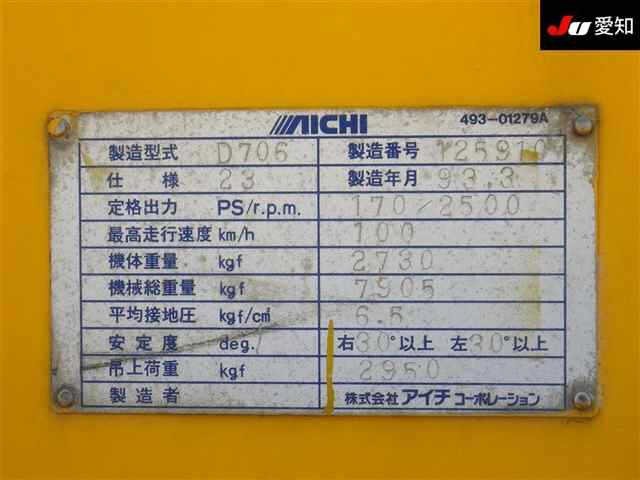 Ju 愛知
AICHI 493-01279A
製造型式 D706 製造番号 125910
仕様 23 製造年月 93.3
定格出力 PS/r.p.m. 170/2500
最高走行速度 km/h 100
機体重量 kgf 2730
機械総重量 kgf 7905
平均接地圧 kgf/c㎡ 6.5
安定度 deg. 右30°以上 左30°以上
吊上荷重 kgf 2950
製造者 株式会社 アイチ コーポレーション